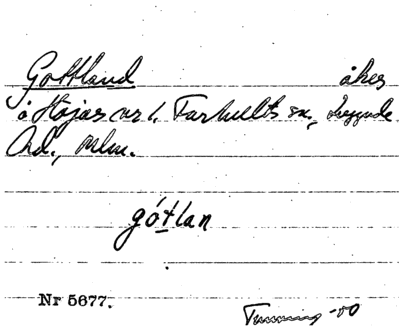 Gottland åker
å Höjas or 1, Farhults sn, Luggude
hd., Mlm.
gótlan
Nr 5677.